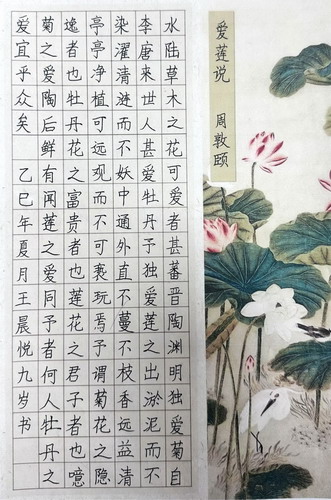 爱莲说 周敦颐
水陆草木之花可爱者甚蕃晋陶渊明独爱菊自
李唐来世人甚爱牡丹予独爱莲之出淤泥而不
染濯清涟而不妖中通外直不蔓不枝香远益清
亭亭净植可远观而不可亵玩焉予谓菊花之隐
逸者也牡丹花之富贵者也莲花之君子者也噫
菊之爱陶后鲜有闻莲之爱同予者何人牡丹之
爱宜乎众矣 乙巳年夏月王晨悦九岁书